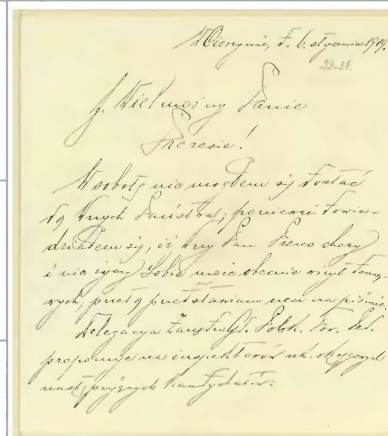 W Cieszynie, d. 6. stycznia 1919.
J. Wielmożny Panie
Prezesie!
W sobotę nie mogłem się dostać
do Wnych Państwa, ponieważ dowie-
działem się, iż Wny Pan Prezes chory
i nie życzy Sobie wizyt
rych, przeto przedstawiam na piśmie.
Delegacya Polsk. Tow. Ped.
proponuje na inspektorów szk. okręgowych
następujących kandydatów.